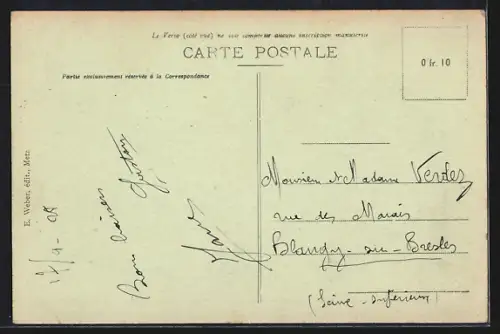 Le Verso (côté vue) ne doit comporter aucune inscription manuscrite
CARTE POSTALE
Partie exclusivement réservée à la Correspondance
0 fr. 10
E. Weber, édit., Metz
Bons baisers
Monsieur et Madame Verdez
rue des Marais
Blangy-sur-Bresles
(Seine-inférieure)